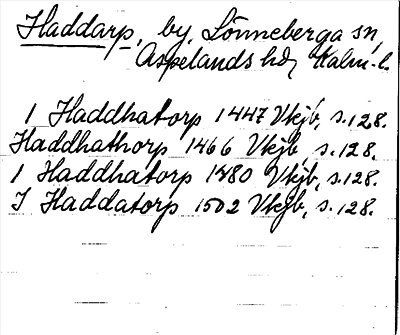 Haddarp, by, Lönneberga sn,
Aspelands hd, Kalm. l.
I Haddhatorp 1447 Vkjb, s. 128.
Haddhathorp 1466 Vkjb, s. 128.
I Haddhatorp 1480 Vkjb, s. 128.
I Haddatorp 1502 Vkjb, s. 128.